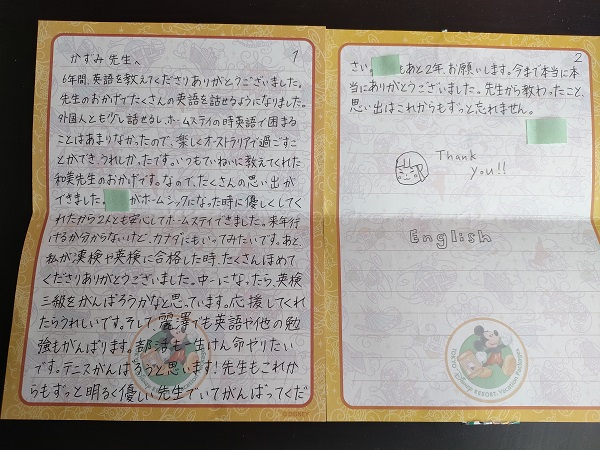 1
かずみ先生へ
6年間、英語を教えてくださりありがとうございました。
先生のおかげでたくさんの英語を話せるようになりました。
外国人とも少し話せるし、ホームステイの時英語で困まる
ことはあまりなかったので、楽しくオーストラリアで過ごすこ
とができ、うれしかったです。いつもていねいに教えてくれた
和美先生のおかげです。なので、たくさんの思い出が
できました。
がホームシックになった時に優しくしてく
れたから2人とも安心してホームステイできました。来年行
けるか分からないけど、カナダにもいってみたいです。あと、
私が漢検や英検に合格した時、たくさんほめて
くださりありがとうございました。中一になったら、英検
三級をがんばろうかなと思っています。応援してくれ
たらうれしいです。そして麗澤でも英語や他の勉
強もがんばります。部活も一生けん命やりたい
です。テニスがんばろうと思います!先生もこれか
らもずっと明るく優しい先生でいてがんばってくだ
©DISNEY
2
さい。
もあと2年、お願いします。今まで本当に本
当にありがとうございました。先生から教わったこと、
思い出はこれからもずっと忘れません。
Thank
you!!
English
TOKYO DISNEY RESORT